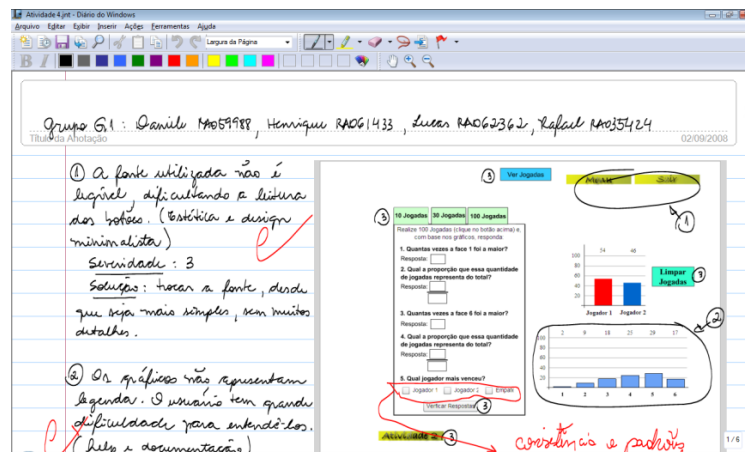 Atividade 4.jnt - Diário do Windows
Arquivo Editar Exibir Inserir Ações Ferramentas Ajuda
Largura da Página
B I
Grupo G.1 : Daniele RA059988, Henrique RA061433, Lucas RA062362, Rafael RA035424
Título da Anotação 02/09/2008
① A fonte utilizada não é
legível, dificultando a leitura
dos botões. (Estética e design
minimalista)
Severidade : 3
Solução : trocar a fonte, desde
que seja mais simples, sem muitos
detalhes.
② Os gráficos não apresentam
legenda. O usuário tem grande
dificuldade para entendê-los.
(help e documentação)
③ Ver Jogadas
Menu Sair
①
③ 10 Jogadas 30 Jogadas 100 Jogadas
Realize 100 Jogadas (clique no botão acima) e,
com base nos gráficos, responda:
1. Quantas vezes a face 1 foi a maior?
Resposta:
2. Qual a proporção que essa quantidade
de jogadas representa do total?
Resposta:
3. Quantas vezes a face 6 foi a maior?
Resposta:
4. Qual a proporção que essa quantidade
de jogadas representa do total?
Resposta:
5. Qual jogador mais venceu?
Jogador 1 Jogador 2 Empate
Verificar Respostas ③
Atividade 2 ③
54 46
100
80
60
40
20
Jogador 1 Jogador 2
Limpar
Jogadas ③
②
2 9 18 25 29 17
100
80
60
40
20
1 2 3 4 5 6
consistência e padrões
1/6